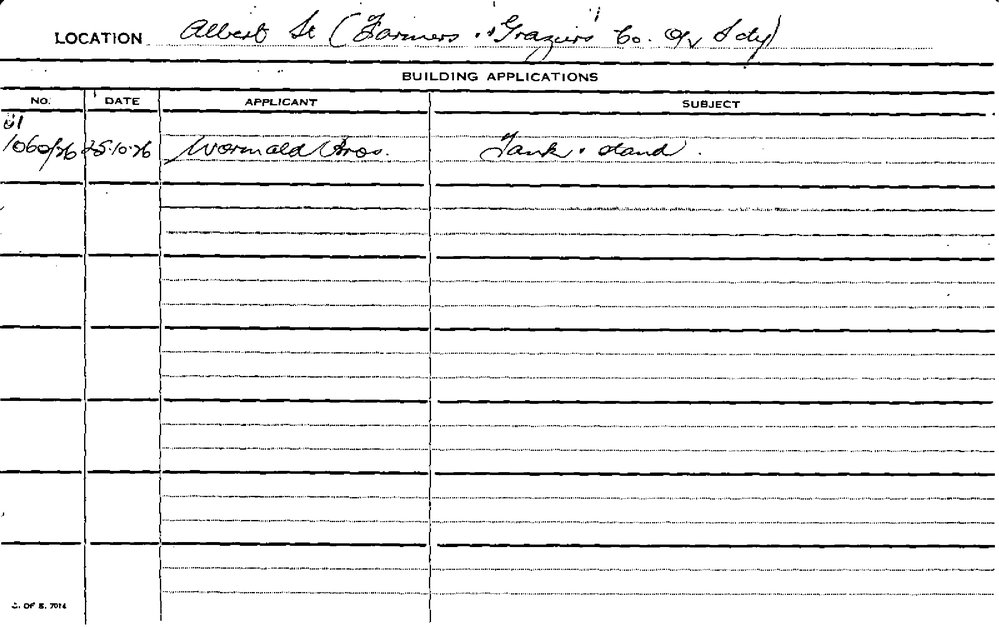 LOCATION Albert St (Farmers & Graziers Co. Op Ldy)
BUILDING APPLICATIONS
NO. DATE APPLICANT SUBJECT
61
1060/26 25.10.26 Wormald Bros. Tank & stand.
C. OF S. 7014